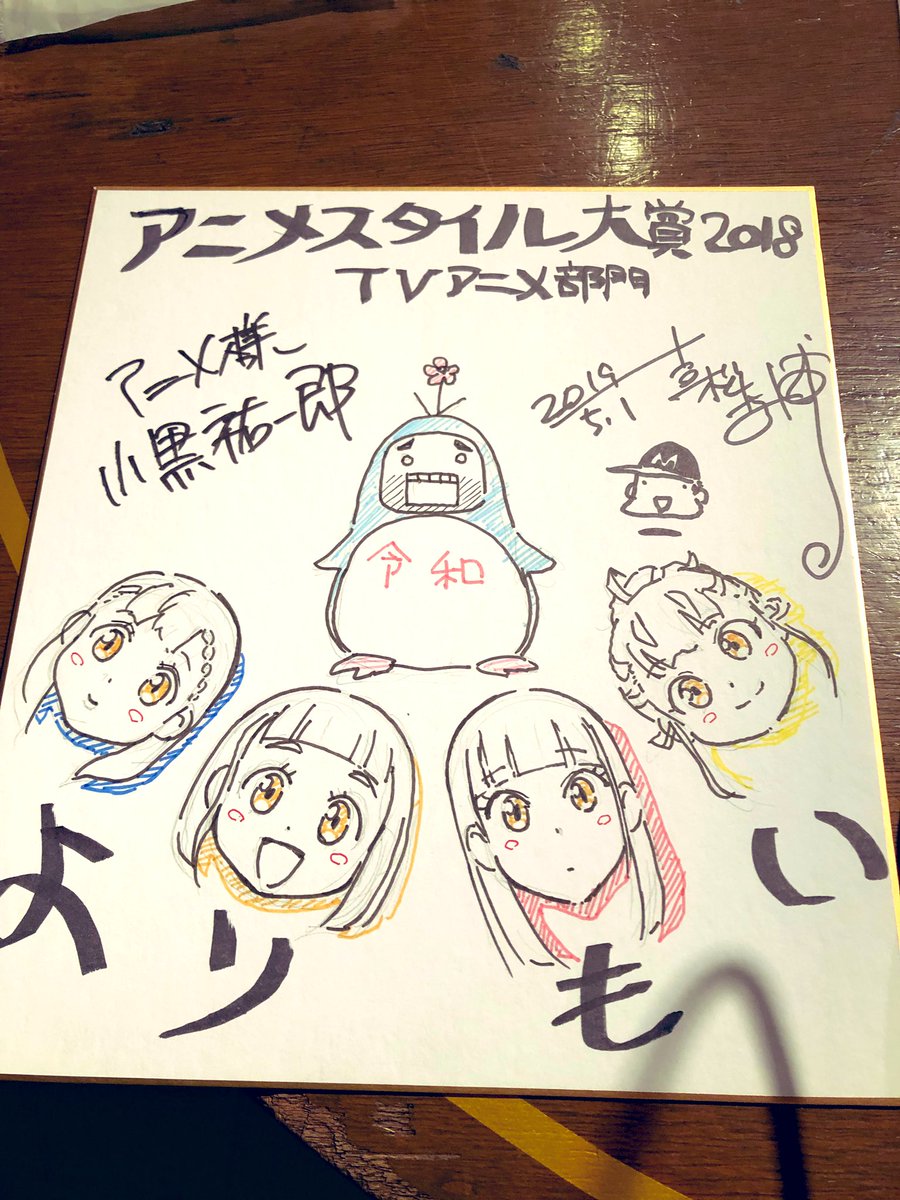 アニメスタイル大賞2018
TVアニメ部門
アニメ様
小黒祐一郎
2019
5.1
吉松孝博
M
令和
よりもい